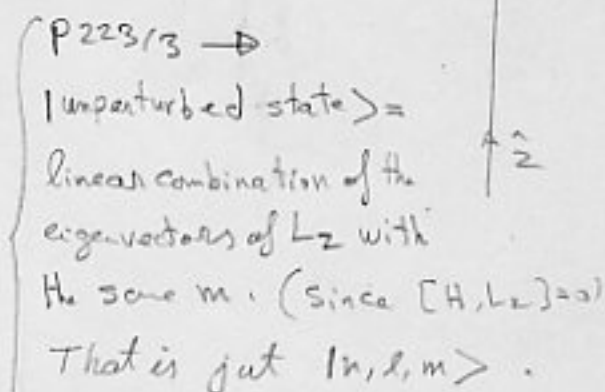 P223/3 →
|unperturbed state> =
linear combination of the
ẑ
eigenvectors of Lz with
the same m. (Since [H,Lz]=0)
That is jut |n,l,m>.